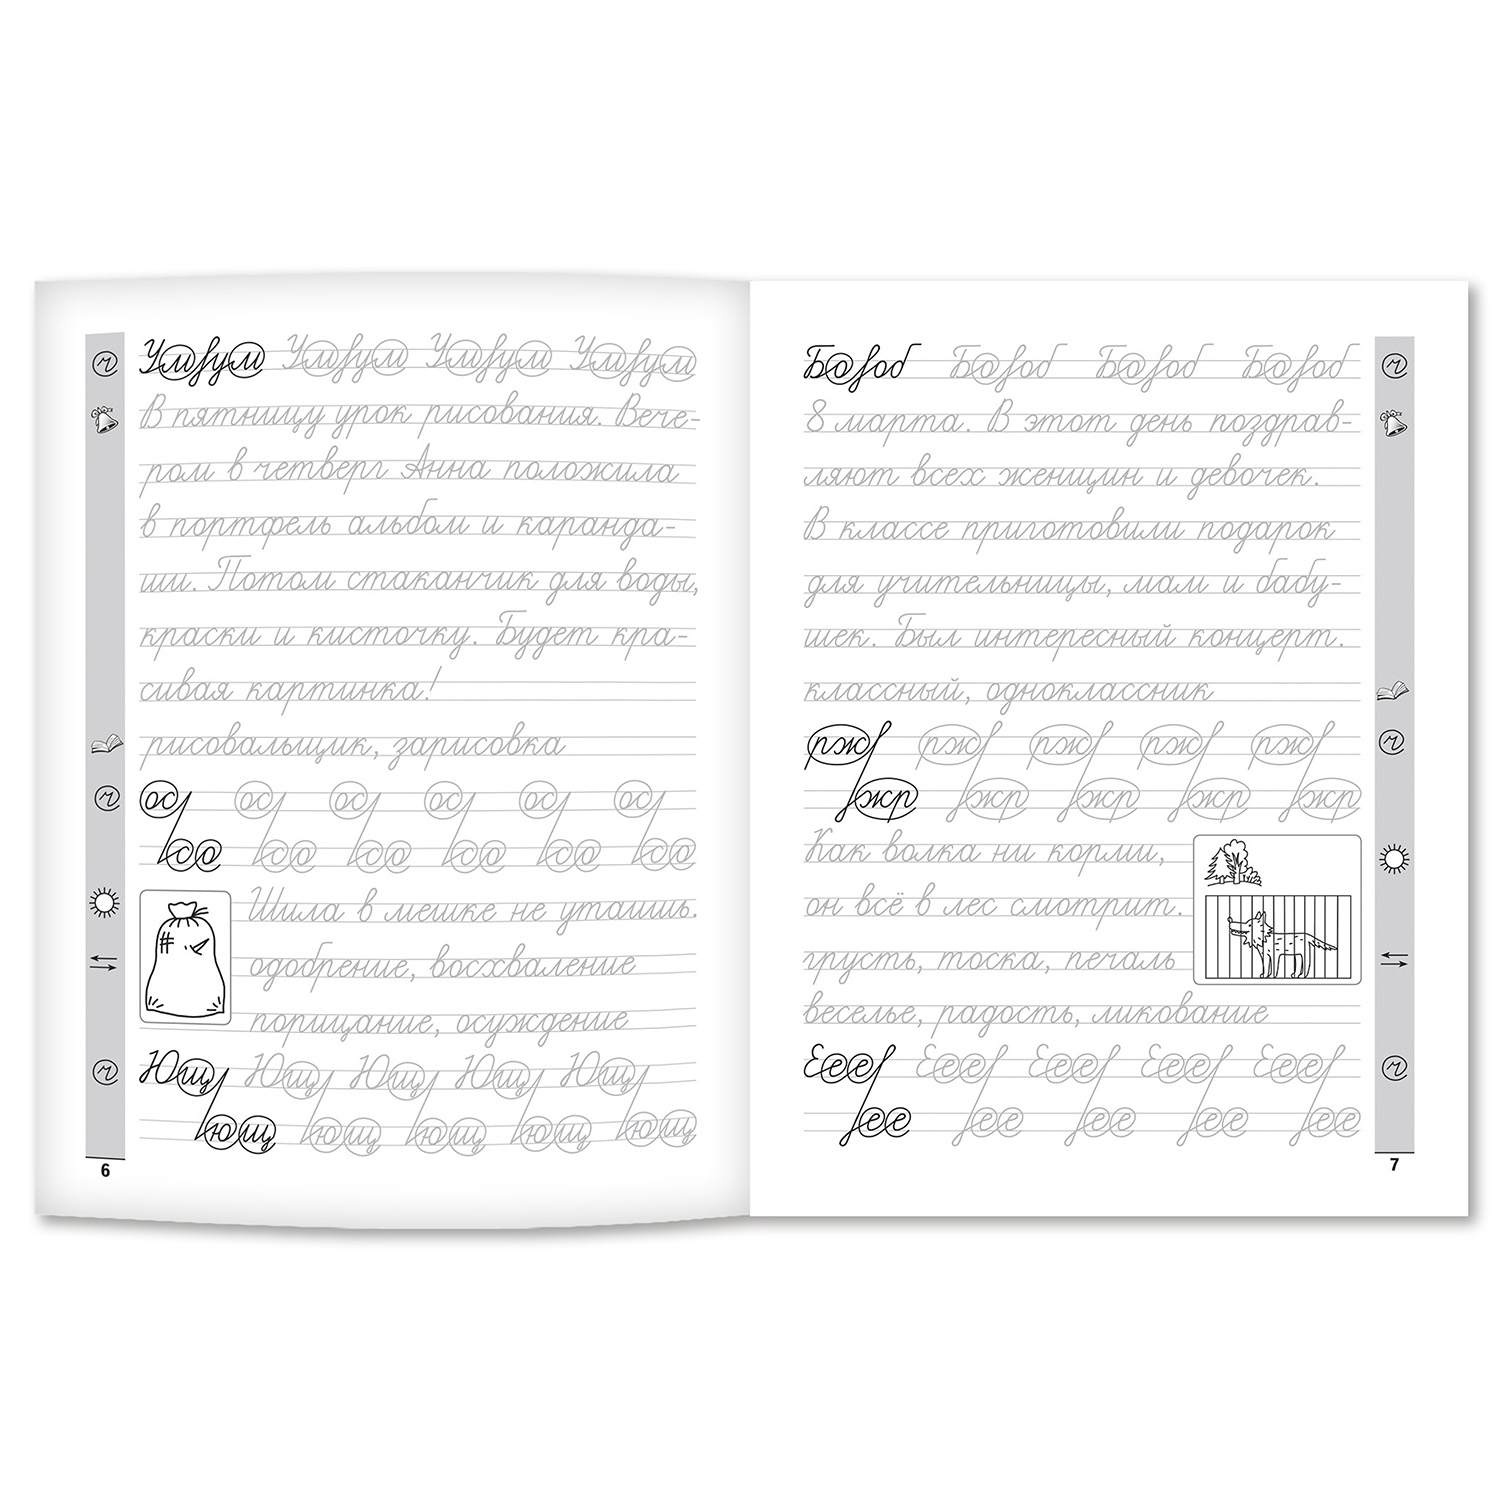 Умум Умум Умум Умум
В пятницу урок рисования. Вече-
ром в четверг Анна положила
в портфель альбом и каранда-
ши. Потом стаканчик для воды,
краски и кисточку. Будет кра-
сивая картинка!
рисовальщик, зарисовка
ос ос ос ос ос ос
со со со со со со
Шила в мешке не утаишь.
одобрение, восхваление
порицание, осуждение
Ющ Ющ Ющ Ющ Ющ
ющ ющ ющ ющ ющ
6
Бооб Бооб Бооб Бооб
8 марта. В этот день поздрав-
ляют всех женщин и девочек.
В классе приготовили подарок
для учительницы, мам и бабу-
шек. Был интересный концерт.
классный, одноклассник
рж рж рж рж рж
жр жр жр жр жр
Как волка ни корми,
он всё в лес смотрит.
грусть, тоска, печаль
веселье, радость, ликование
Еее Еее Еее Еее Еее
ее ее ее ее ее
7